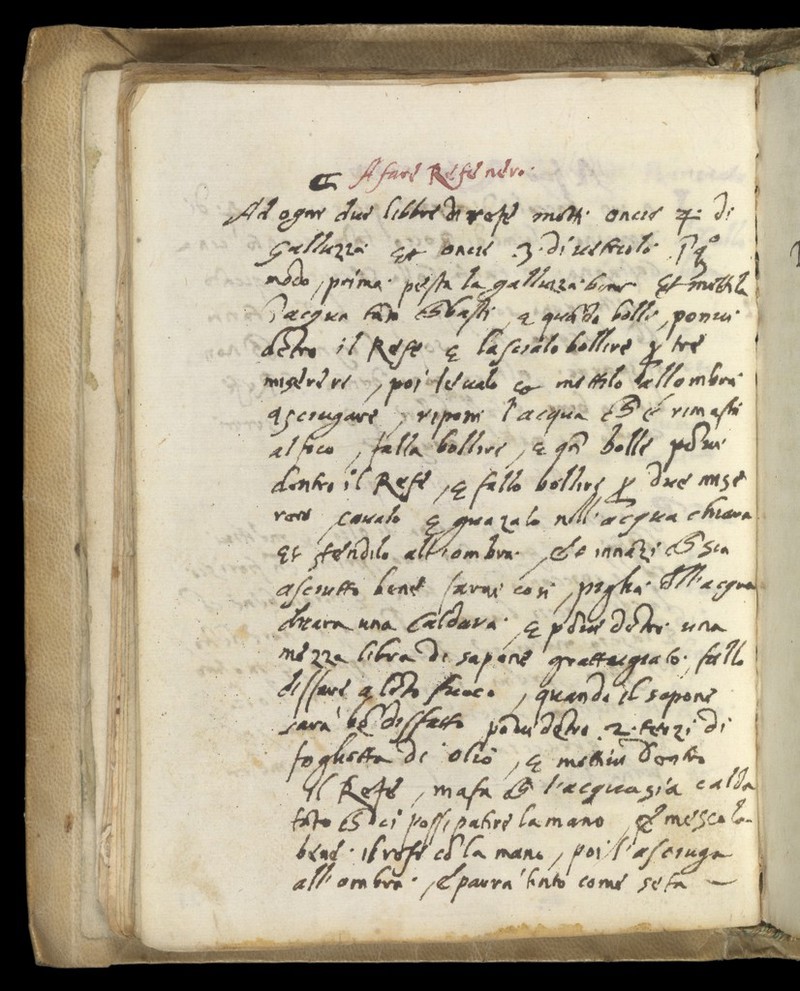 A fare Refe nero.
Ad ogni due libbre di refe metti oncie 4. di
galluzza et oncie .3. di vetriolo
modo, prima pesta la galluzza bene et mettila
acqua basti, e quādo bolle, ponvi
dētro il Refe e lascialo bollire tre
miserere, poi levalo et mettilo all ombra
asciugare, riponi l'acqua è rimasta
al foco, falla bollire, e qn̄ bolle pōvi
dentro il Refe, e fallo bollire due mise
rere, cavalo e guazalo nell'acqua chiara
et stendilo all'ombra. innāzi sia
asciutto bene farai cosi, piglia dell'acqua
chiara una caldara. e pōvi dētro una
mezza libra di sapone grattugiato, fallo
disfare a lēto fuoco, quando il sapone
sara bē disfatto pōvi dētro .2. terzi di
foghetta di olio, e mettivi dentro
il Refe, ma fa l'acqua sia calda
tāto ci possi patire la mano, et mescola
bene. il refe cō la mano, poi l'asciuga
all'ombra. parra tinto come seta